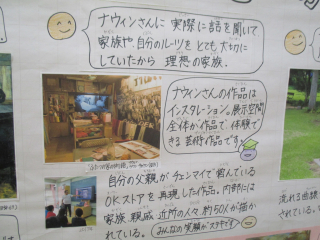 ナウィンさんに 実際に話を聞いて
家族や自分のルーツを とても大切に
していたから 理想の家族.
ナウィンさんの作品は
インスタレーション。展示空間
全体が作品で 体験で
きる芸術作品です。
自分の父親が チェンマイで 営んでいる
OKストアを 再現した作品。内部には
家族、親戚、近所の人々 約50人が描か
れている。みんなの笑顔がステキです
流れる曲線
されている。